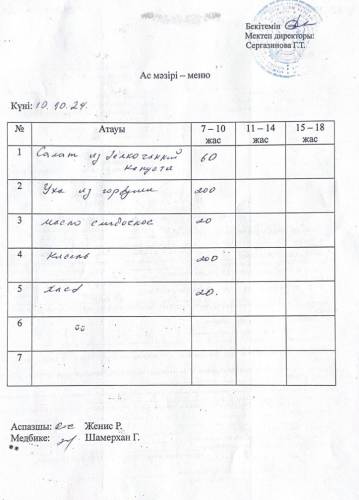 Бекітемін
Мектеп директоры:
Сергазинова Г.Т.
Ас мәзірі – меню
Күні: 10.10.24.
№ Атауы 7 – 10 жас 11 – 14 жас 15 – 18 жас
1 Салат из белкочанной 60
капуста
2 Уха из горбуши 200
3 масло сливочное 20
4 кисель 200
5 хлеб 20.
6
7
Аспазшы: Женис Р.
Медбике: Шамерхан Г.